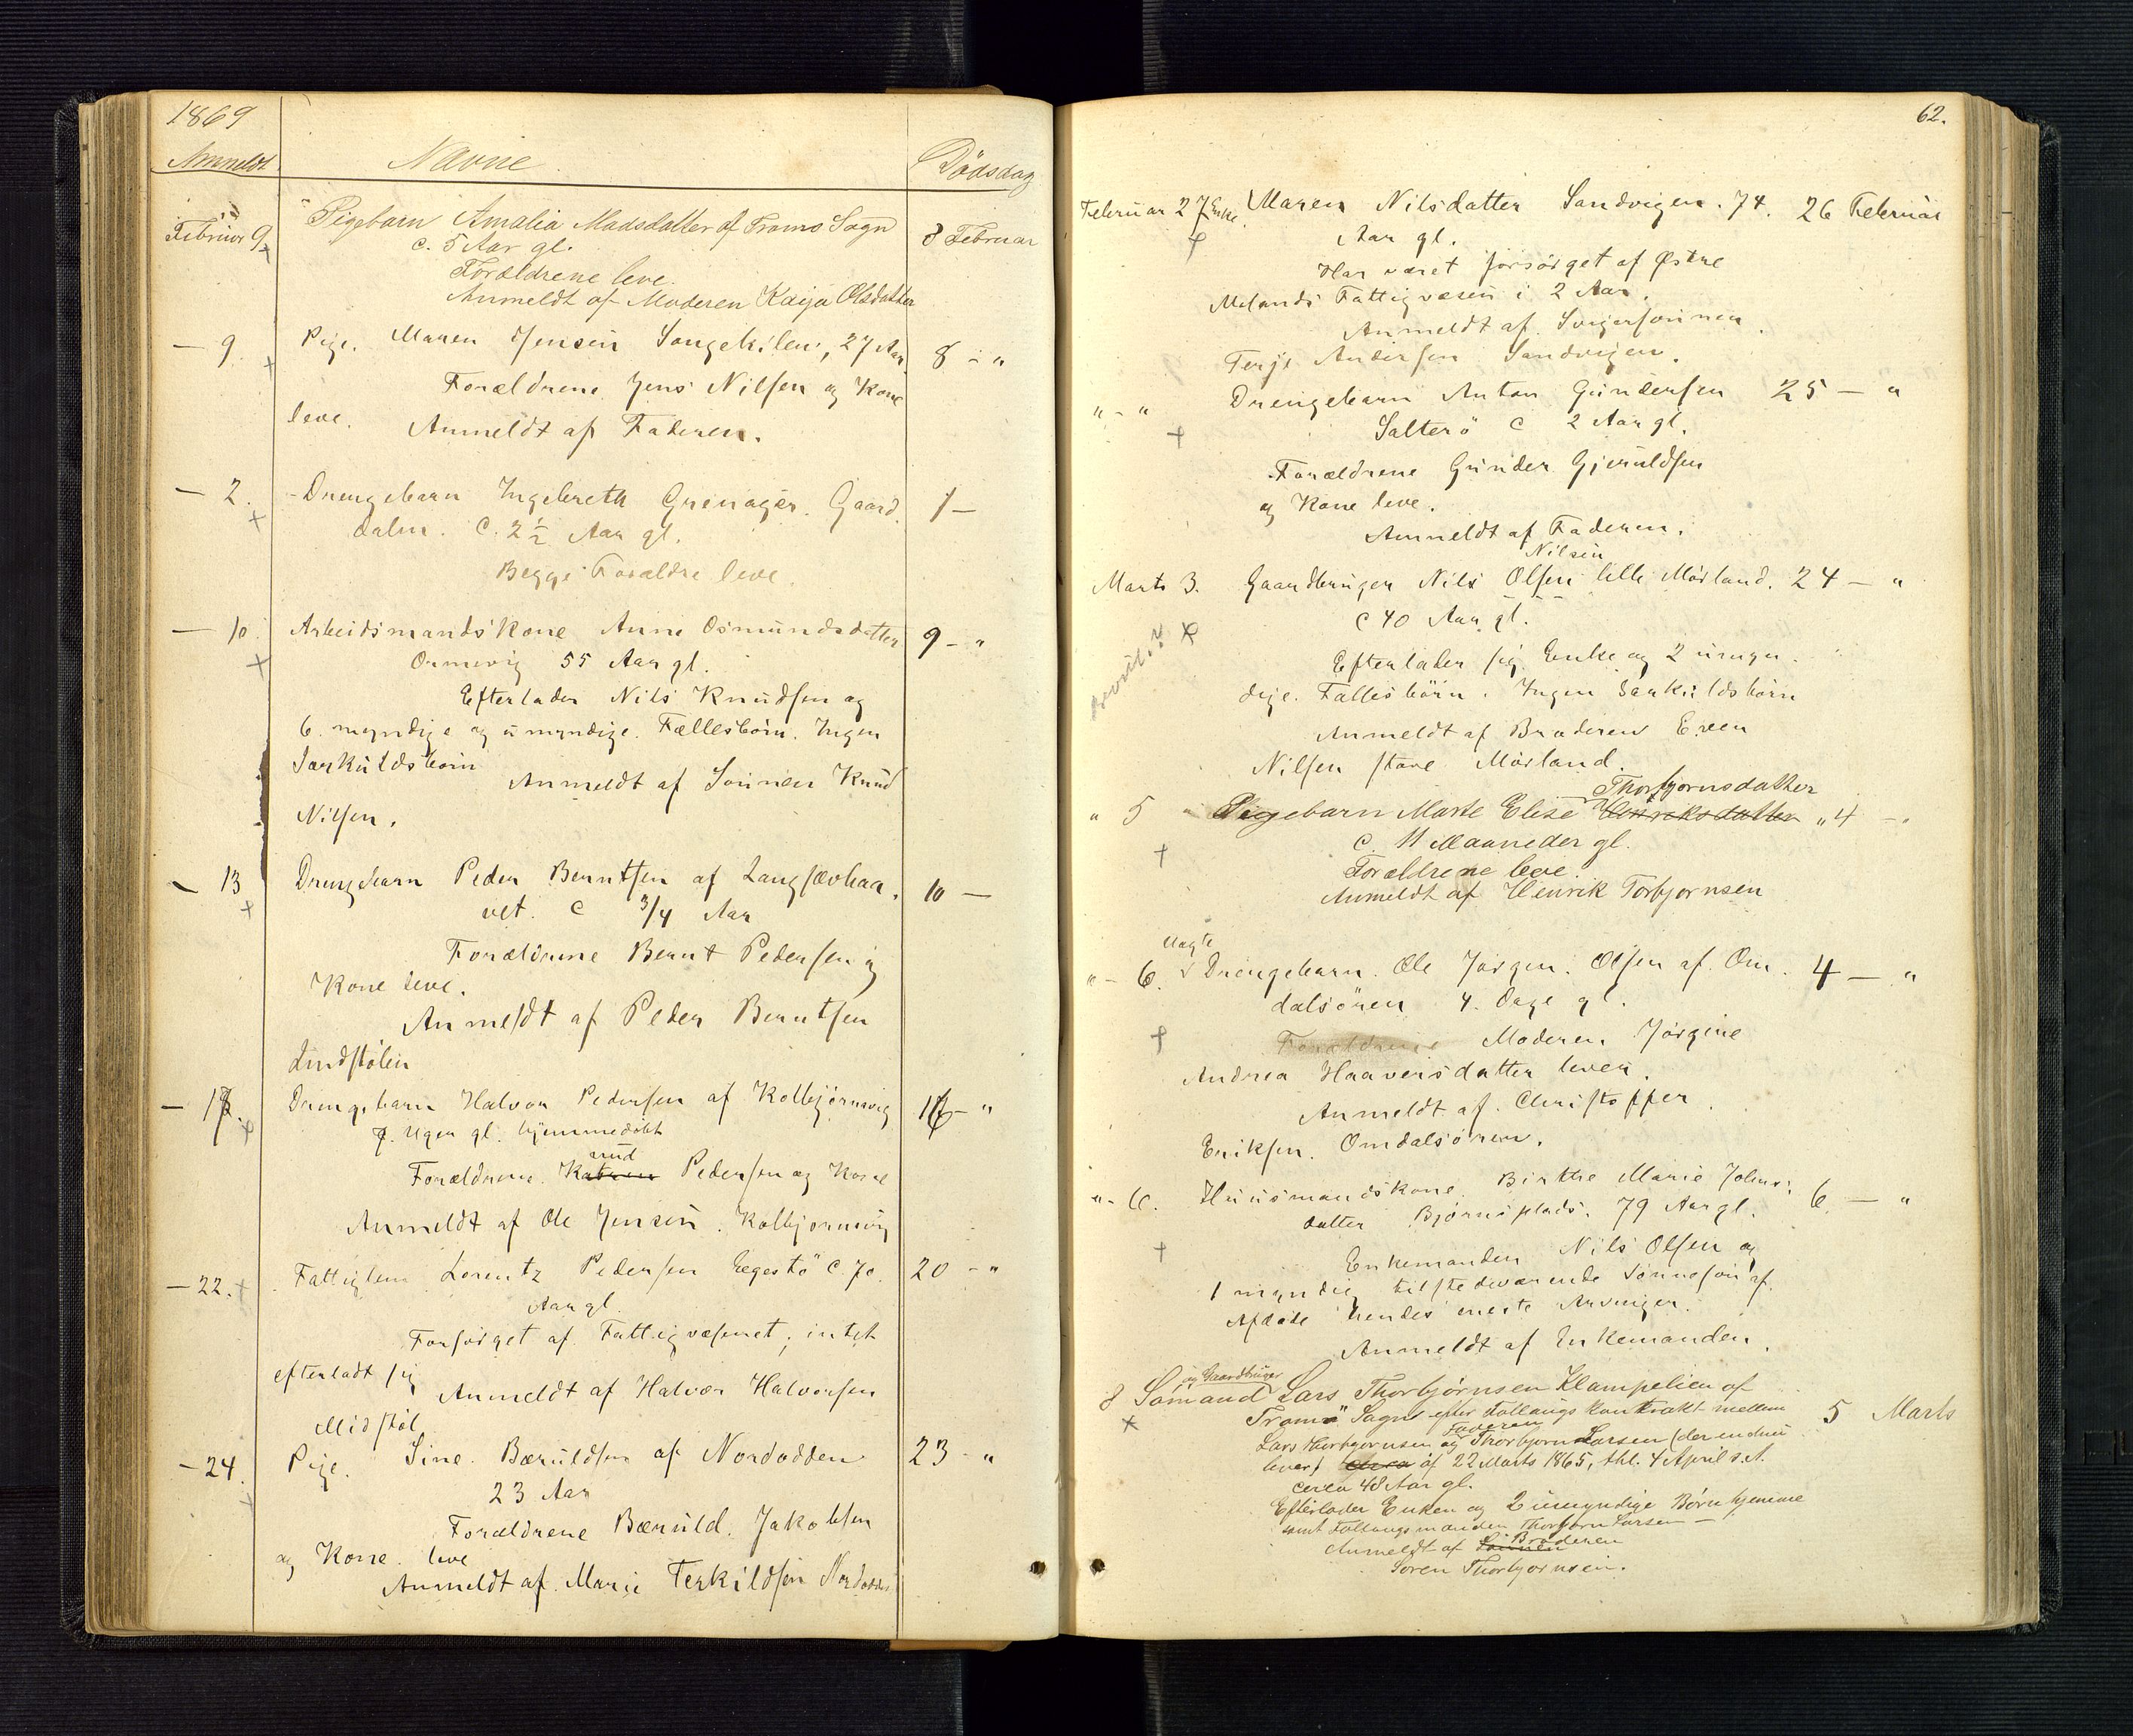 1869
Anmeldt. Navne. Dödsdag
Februar 9 Pigebarn Amalia Madsdatter af Tromö Sogn 8 Februar
c. 5 Aar gl.
Forældrene leve.
Anmeldt af Moderen Kaija Olsdatter
— 9. Pige. Maren Jensen Songekilen, 27 Aar 8 - "
Forældrene Jens Nilsen og Kone
leve. Anmeldt af Faderen.
— 2. Drengebarn Ingebreth Grenager. Gaard 1 —
dalen. C. 2 1/2 Aar gl.
Begge Forældre leve.
— 10. Arbeidsmandskone Anne Osmundsdatter 9 - "
Ormevig 55 Aar gl.
Efterlader Nils Knudsen og
6 myndige og umyndige Fællesbörn. Ingen
Særkuldsbörn Anmeldt af Sönnen Knud
Nilsen.
— 13 Drengebarn Peder Berntsen af Langsævhaa- 10 —
vet. C 3/4 Aar
Forældrene Bernt Pedersen og
Kone leve.
Anmeldt af Peder Berntsen
Lindstölen
— 17. Drengebarn Halvor Pedersen af Kolbjörnsvig 16 - "
Uger gl. hjemmedöbt
nud
Forældrene Katrine Pedersen og Kone
Anmeldt af Ole Jensen. Kolbjornsvig
— 22. Fattiglem Lorentz Pedersen Gegestö C. 70 20 - "
Aar gl.
Forsörget af Fattigvæsenet, intet
efterladt sig Anmeldt af Halvor Halvorsen
Midstöl
— 24. Pige. Sine Bæruldsen af Nordodden 23 - "
23 Aar
Forældrene Bæruld Jakobsen
og Kone leve
Anmeldt af Marie Terkildsen Nordodden
62.
Februar 27 Enke Maren Nilsdatter Sandvigen. 74. 26 Februar
Aar gl.
Har været forsörget af Østre
Molands Fattigvæsen i 2 Aar.
Anmeldt af Svigersönnen
Terje Andersen Sandvigen.
" - " Drengebarn Anton Gundersen 25 — "
Salterö C 2 Aar gl.
Forældrene Gunder Gjeruldsen
og Kone leve.
Anmeldt af Faderen.
Nilsen
Marts 3. Gaardbruger Nils Olsen lille Mörland. 24 — "
C 40 Aar gl.
Efterlader sig Enke og 2 umyn-
dige Fællesbörn. Ingen Særkuldsbörn
Anmeldt af Broderen Even
Nilsen store Mörland.
Thorbjornsdatter
" 5 " Pigebarn Marte Elise Henriksdatter " 4 - "
c. 11 Maaneder gl.
Forældrene leve.
Anmeldt af Henrik Torbjornsen
uægte
" - 6. Drengebarn Ole Jörgen Olsen af Om- 4 — "
dalsören 4 Dage gl.
Forældrene Moderen Jörgine
Andrea Haaversdatter lever.
Anmeldt af Christopher
Eriksen. Omdalsören.
" - 6. Huusmandskone Birthe Marie Johns- 6 — "
datter Bjørnsplads. 79 Aar gl.
Enkemanden Nils Olsen og
1 myndig tilstedeværende Sönnesön af
Afdöde hendes eneste Arvinger.
Anmeldt af Enkemanden.
og Gaardbruger
8 Sömand Lars Thorbjørnsen Klampelien af
Tromö Sogn efter Føllaugs kontrakt mellem 5 Marts
Faderen
Lars Thorbjornsen og Thorbjorn Larsen (der endnu
lever) af 22 Marts 1865, thl. 4 April s.A.
circa 48 Aar gl.
Efterlader Enken og 2 umyndige Børn hjemme
samt Føllaugsmanden Thorbjorn Larsen —
Broderen
Anmeldt af Sönnen
Soren Thorbjornsen.